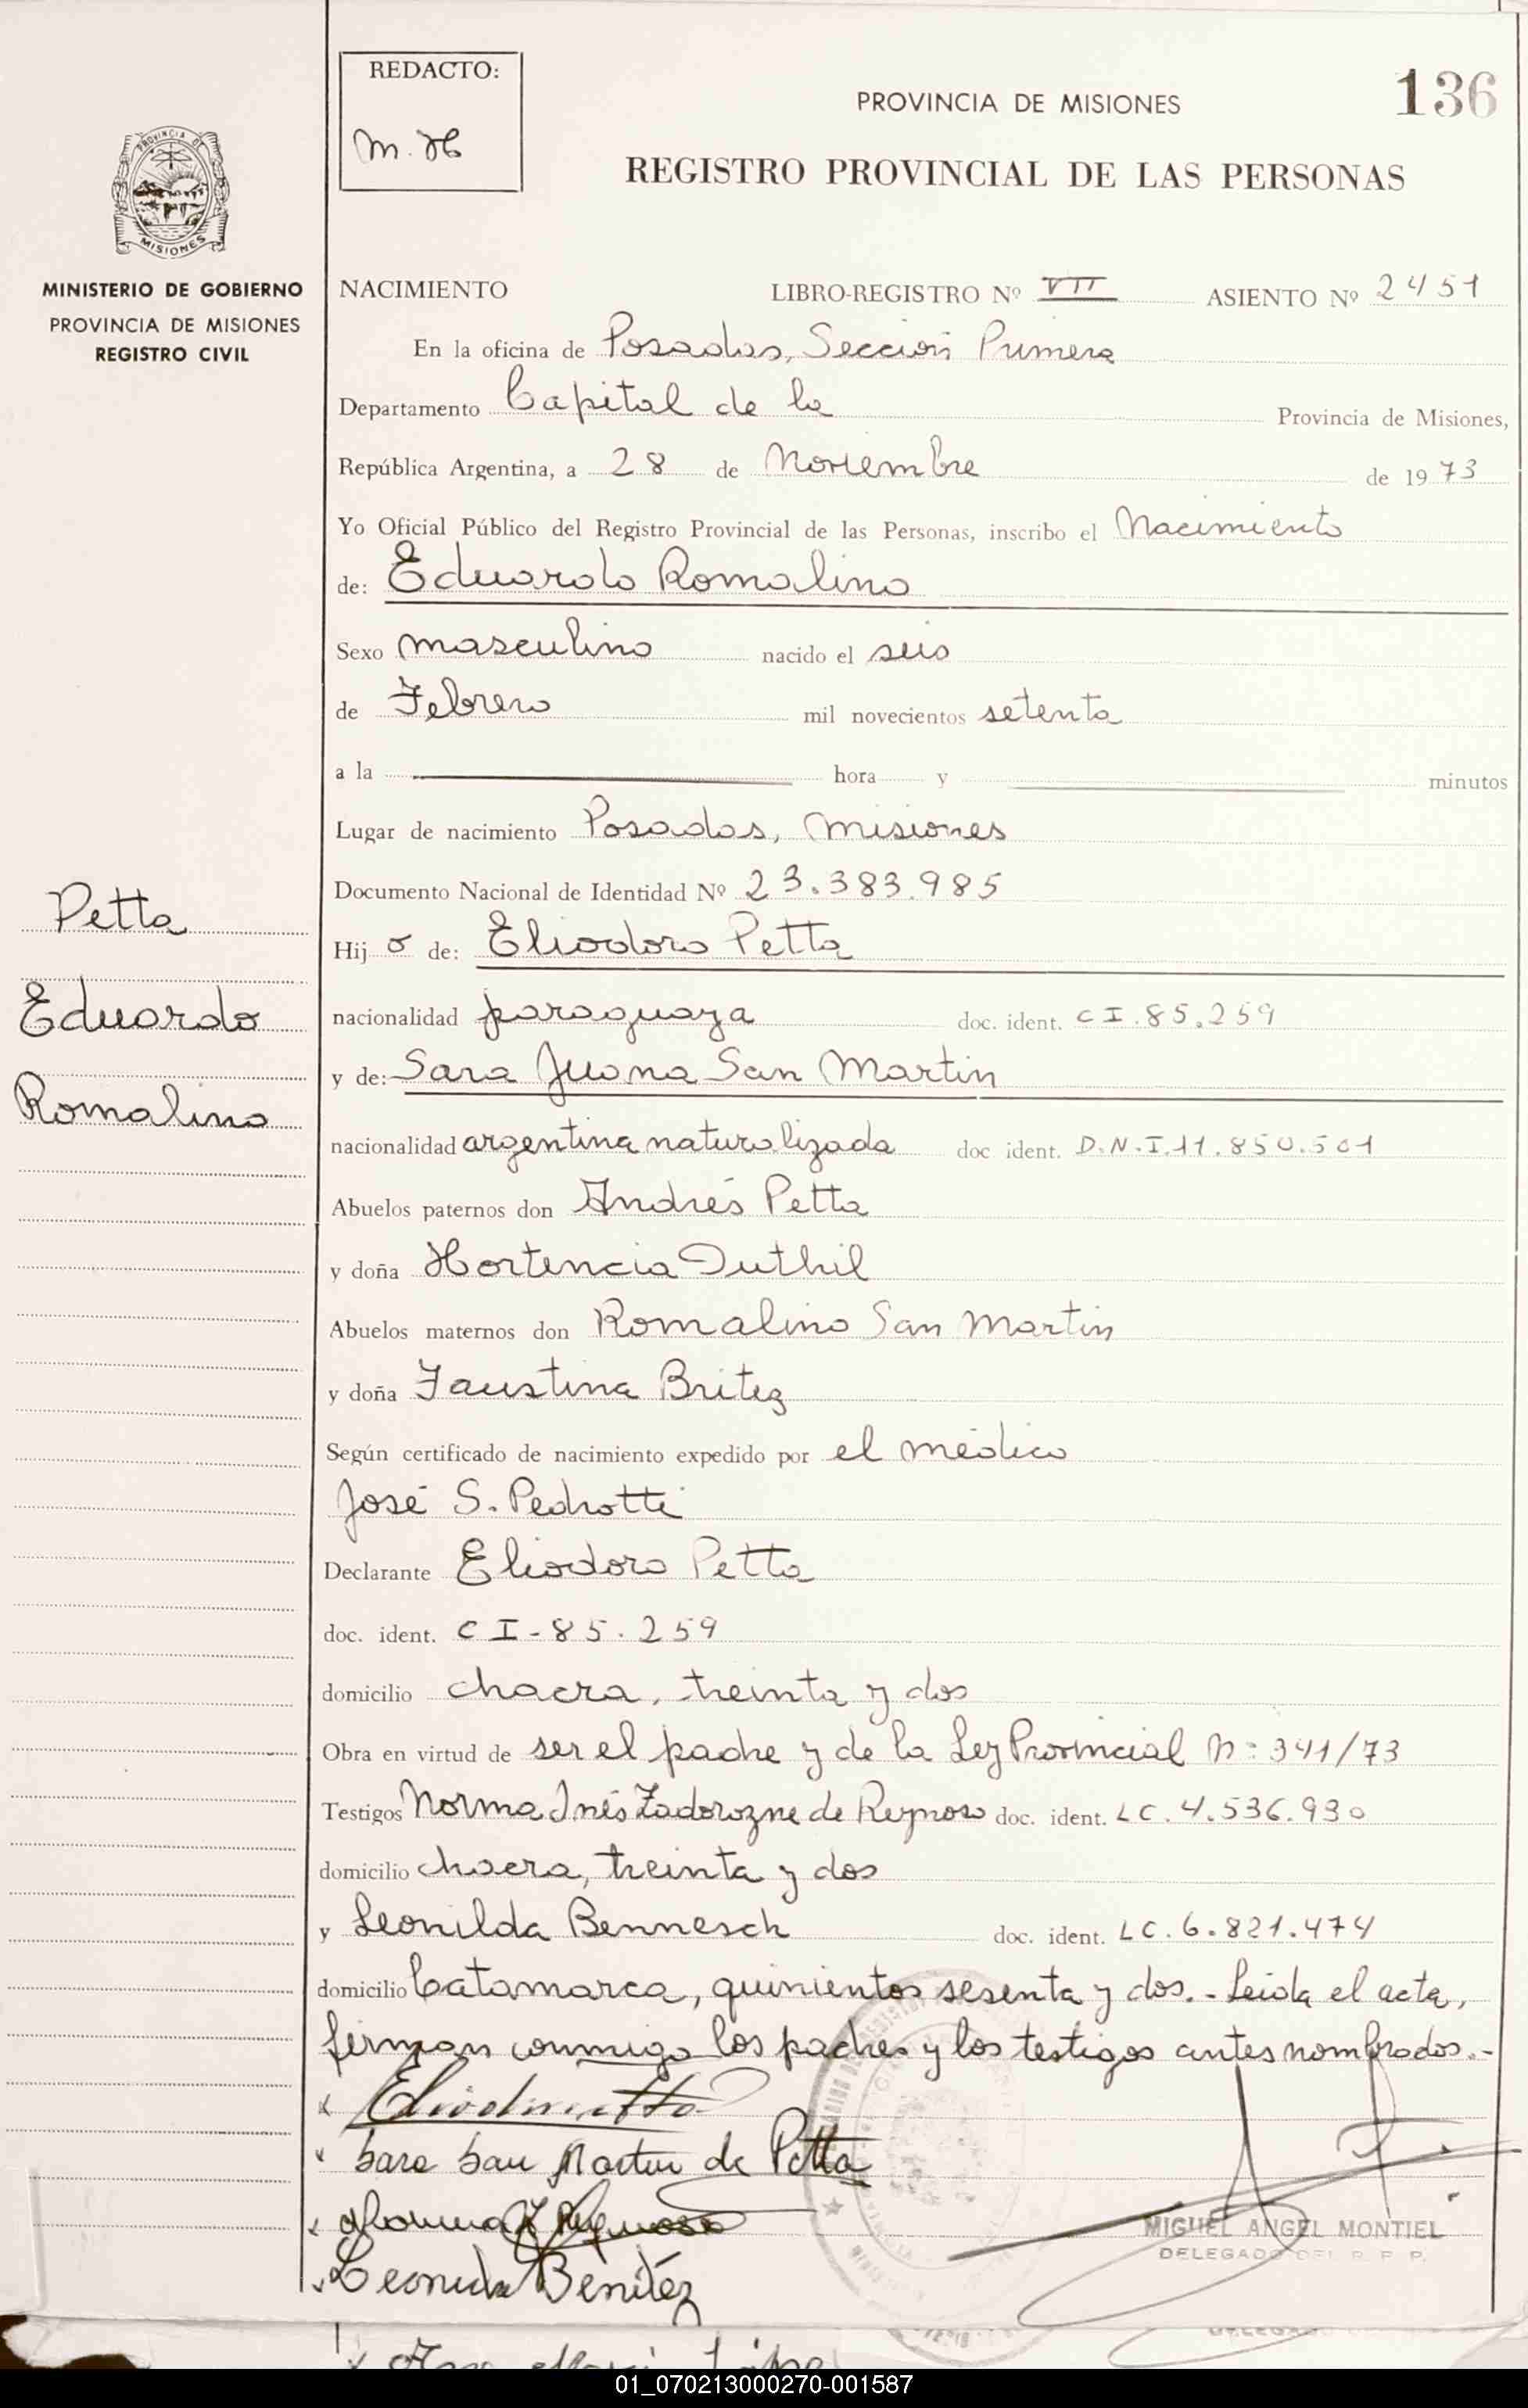 REDACTO:
m. H
136
PROVINCIA DE MISIONES
REGISTRO PROVINCIAL DE LAS PERSONAS
PROVINCIA DE
MISIONES
MINISTERIO DE GOBIERNO
PROVINCIA DE MISIONES
REGISTRO CIVIL
NACIMIENTO LIBRO-REGISTRO Nº VII ASIENTO Nº 2451
En la oficina de Posadas, Sección Primera
Departamento Capital de la Provincia de Misiones,
República Argentina, a 28 de Noviembre de 1973
Yo Oficial Público del Registro Provincial de las Personas, inscribo el Nacimiento
de: Eduardo Romalino
Sexo masculino nacido el seis
de Febrero mil novecientos setenta
a la hora y minutos
Lugar de nacimiento Posadas, Misiones
Documento Nacional de Identidad Nº 23.383.985
Petta
Eduardo
Romalino
Hijo de: Eliodoro Petta
nacionalidad paraguaya doc. ident. CI.85.259
y de: Sara Juana San Martin
nacionalidad argentina naturalizada doc ident. D.N.I.11.850.501
Abuelos paternos don Andrés Petta
y doña Hortencia Duthil
Abuelos maternos don Romalino San Martin
y doña Faustina Britez
Según certificado de nacimiento expedido por el médico
José S. Pedrotti
Declarante Eliodoro Petta
doc. ident. CI-85.259
domicilio chacra, treinta y dos
Obra en virtud de ser el padre y de la Ley Provincial n: 341/73
Testigos Norma Inés Zadorozne de Reynoso doc. ident. LC.4.536.930
domicilio chacra, treinta y dos
y Leonilda Bennesch doc. ident. LC.6.821.474
domicilio Catamarca, quinientos sesenta y dos.- Leida el acta,
firman conmigo los padres y los testigos antes nombrados.-
x Sara San Martin de Petta
x Norma Z Reynoso
x Benitez
MIGUEL ANGEL MONTIEL
DELEGADO DEL R. P. P.
01_070213000270-001587